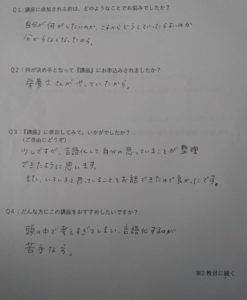 Q1:講座に参加される前は、どのようなことでお悩みでしたか?
自分が何がしたいのか、これからどうしていったらよいのか
分からなくなったから。
Q2:何が決め手となって『講座』にお申込みされましたか?
栄養士さんがやっていたから。
Q3:『講座』に参加してみて、いかがでしたか?
(ご自由にどうぞ)
少しですが、言語化して自分の思っていることが整理
できたように思います。
また、いろいろと思っていることをお話できたので良かったです。
Q4:どんな方にこの講座をおすすめしたいですか?
頭の中で考えすぎてしまい、言語化するのが
苦手な方。
※2枚目に続く